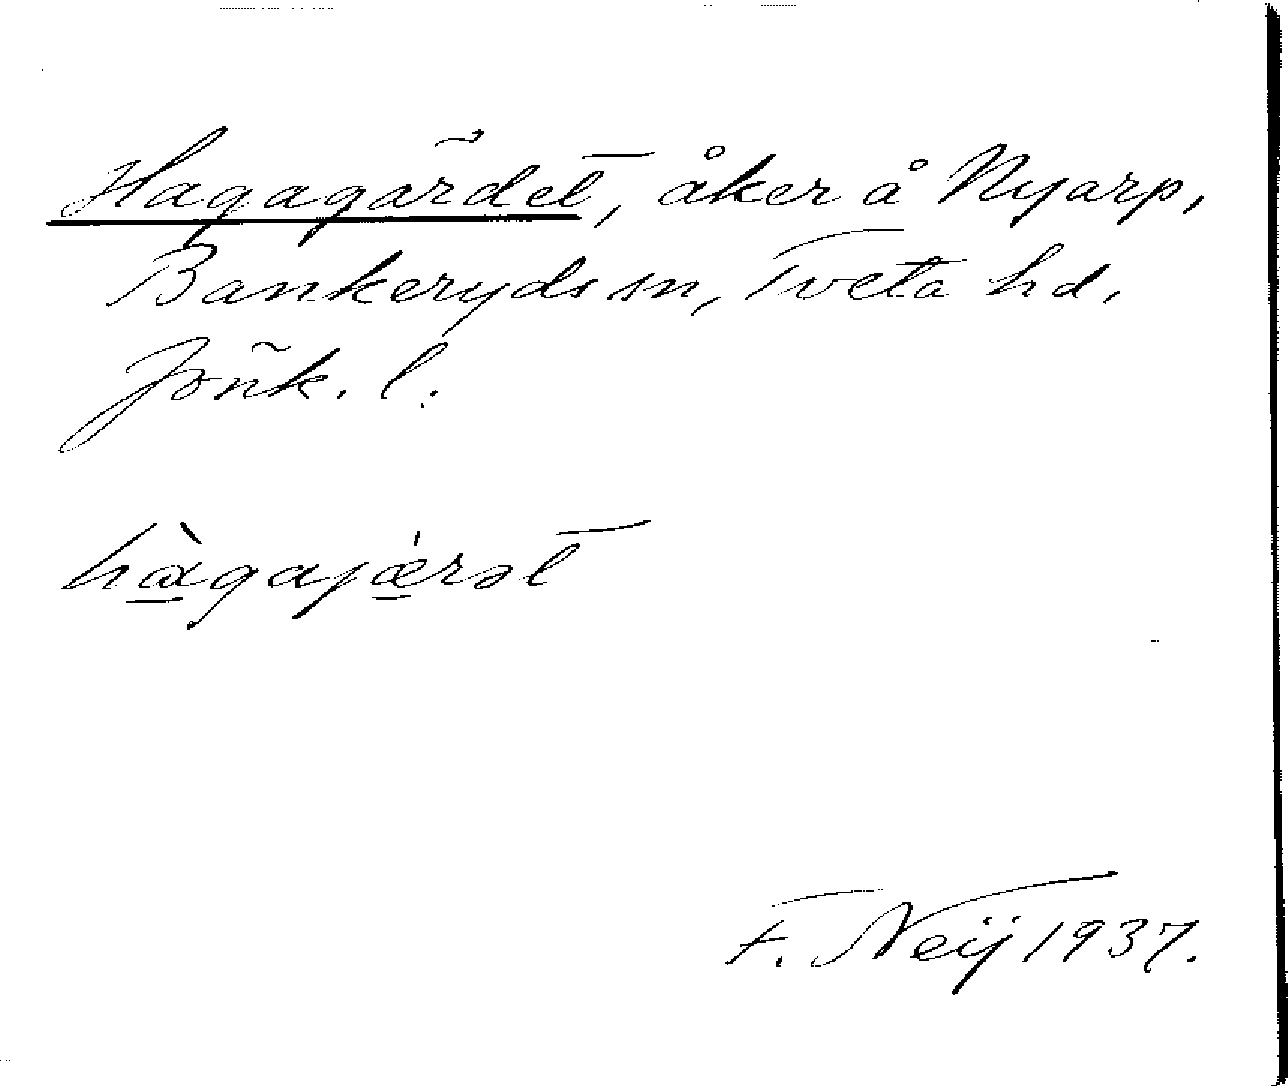 Hagagärdet, åker å Nyarp,
Bankeryds sn, Tveta hd,
Jönk. l.
hàgajæ̍rət
F. Neij 1937.